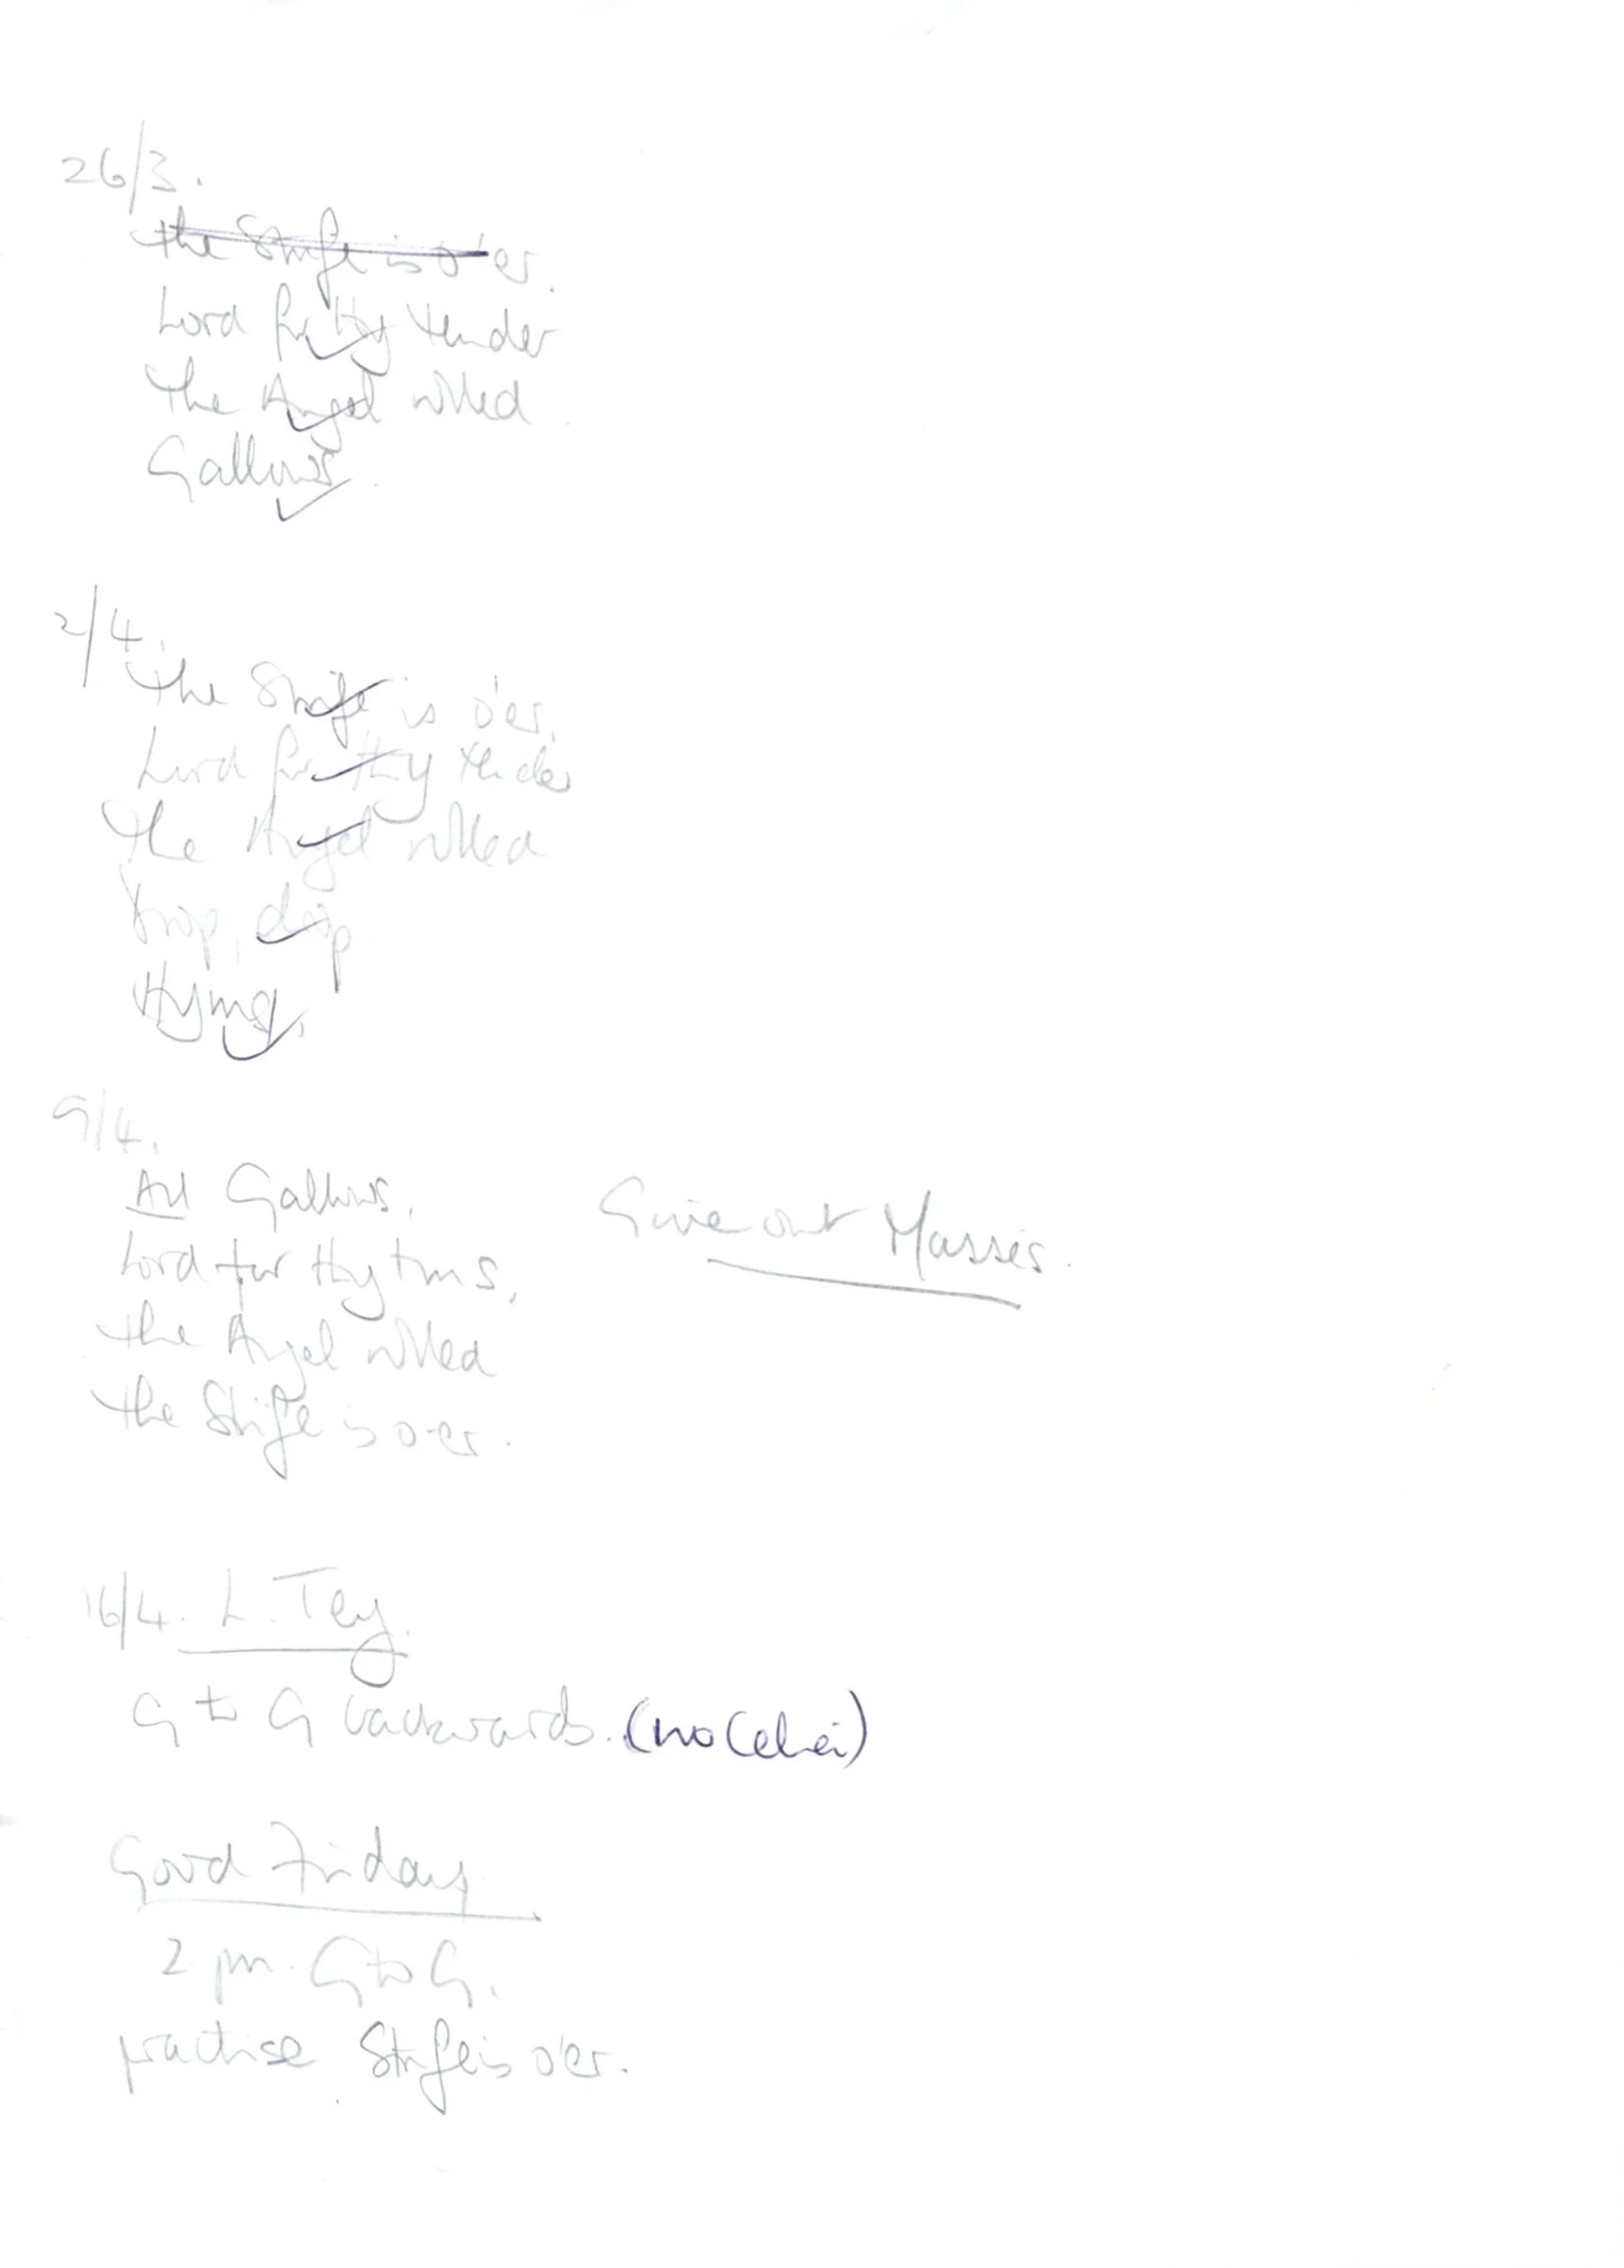 26/3.
the Strife is o'er.
Lord for thy tender
the Angel rolled.
Gallows.
2/4.
the Strife is o'er.
Lord for thy tender
the Angel rolled
Drop, drop
Hymn.
9/4.
All Gallows.
Give out Masses.
Lord for thy tms,
the Angel rolled
the Strife is o'er.
16/4. L. Tey.
G to G backwards. (no Celia)
Good Friday.
2 pm. G to G.
practise Strife is o'er.